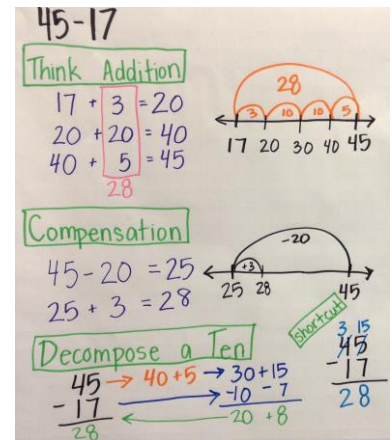 45-17
Think Addition
17 + 3 = 20
20 + 20 = 40
40 + 5 = 45
28
28
3 10 10 5
17 20 30 40 45
Compensation
45-20 = 25
25 + 3 = 28
-20
+3
25 28 45
Decompose a Ten
45 → 40+5 → 30+15
-17 → -10 - 7
28 ← 20 + 8
shortcut
3 15
45
-17
28